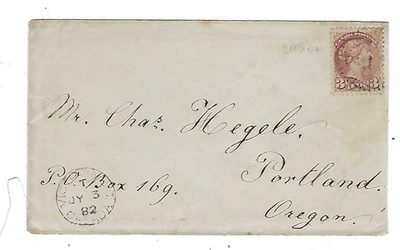 CANADA POSTAGE
3 CENTS 3
Mr. Chas. Hegele.
P.O. Box 169.
Portland.
Oregon.
JY 3
82